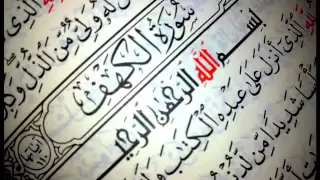 الَّذِي
لَّهُ وَلِيٌّ مِّنَ الذُّلِّ
سُورَةُ الْكَهْفِ
بِسْمِ اللَّهِ الرَّحْمَٰنِ الرَّحِيمِ
الَّذِي أَنزَلَ عَلَىٰ عَبْدِهِ الْكِتَابَ
بَأْسًا شَدِيدًا مِّن لَّدُنْهُ